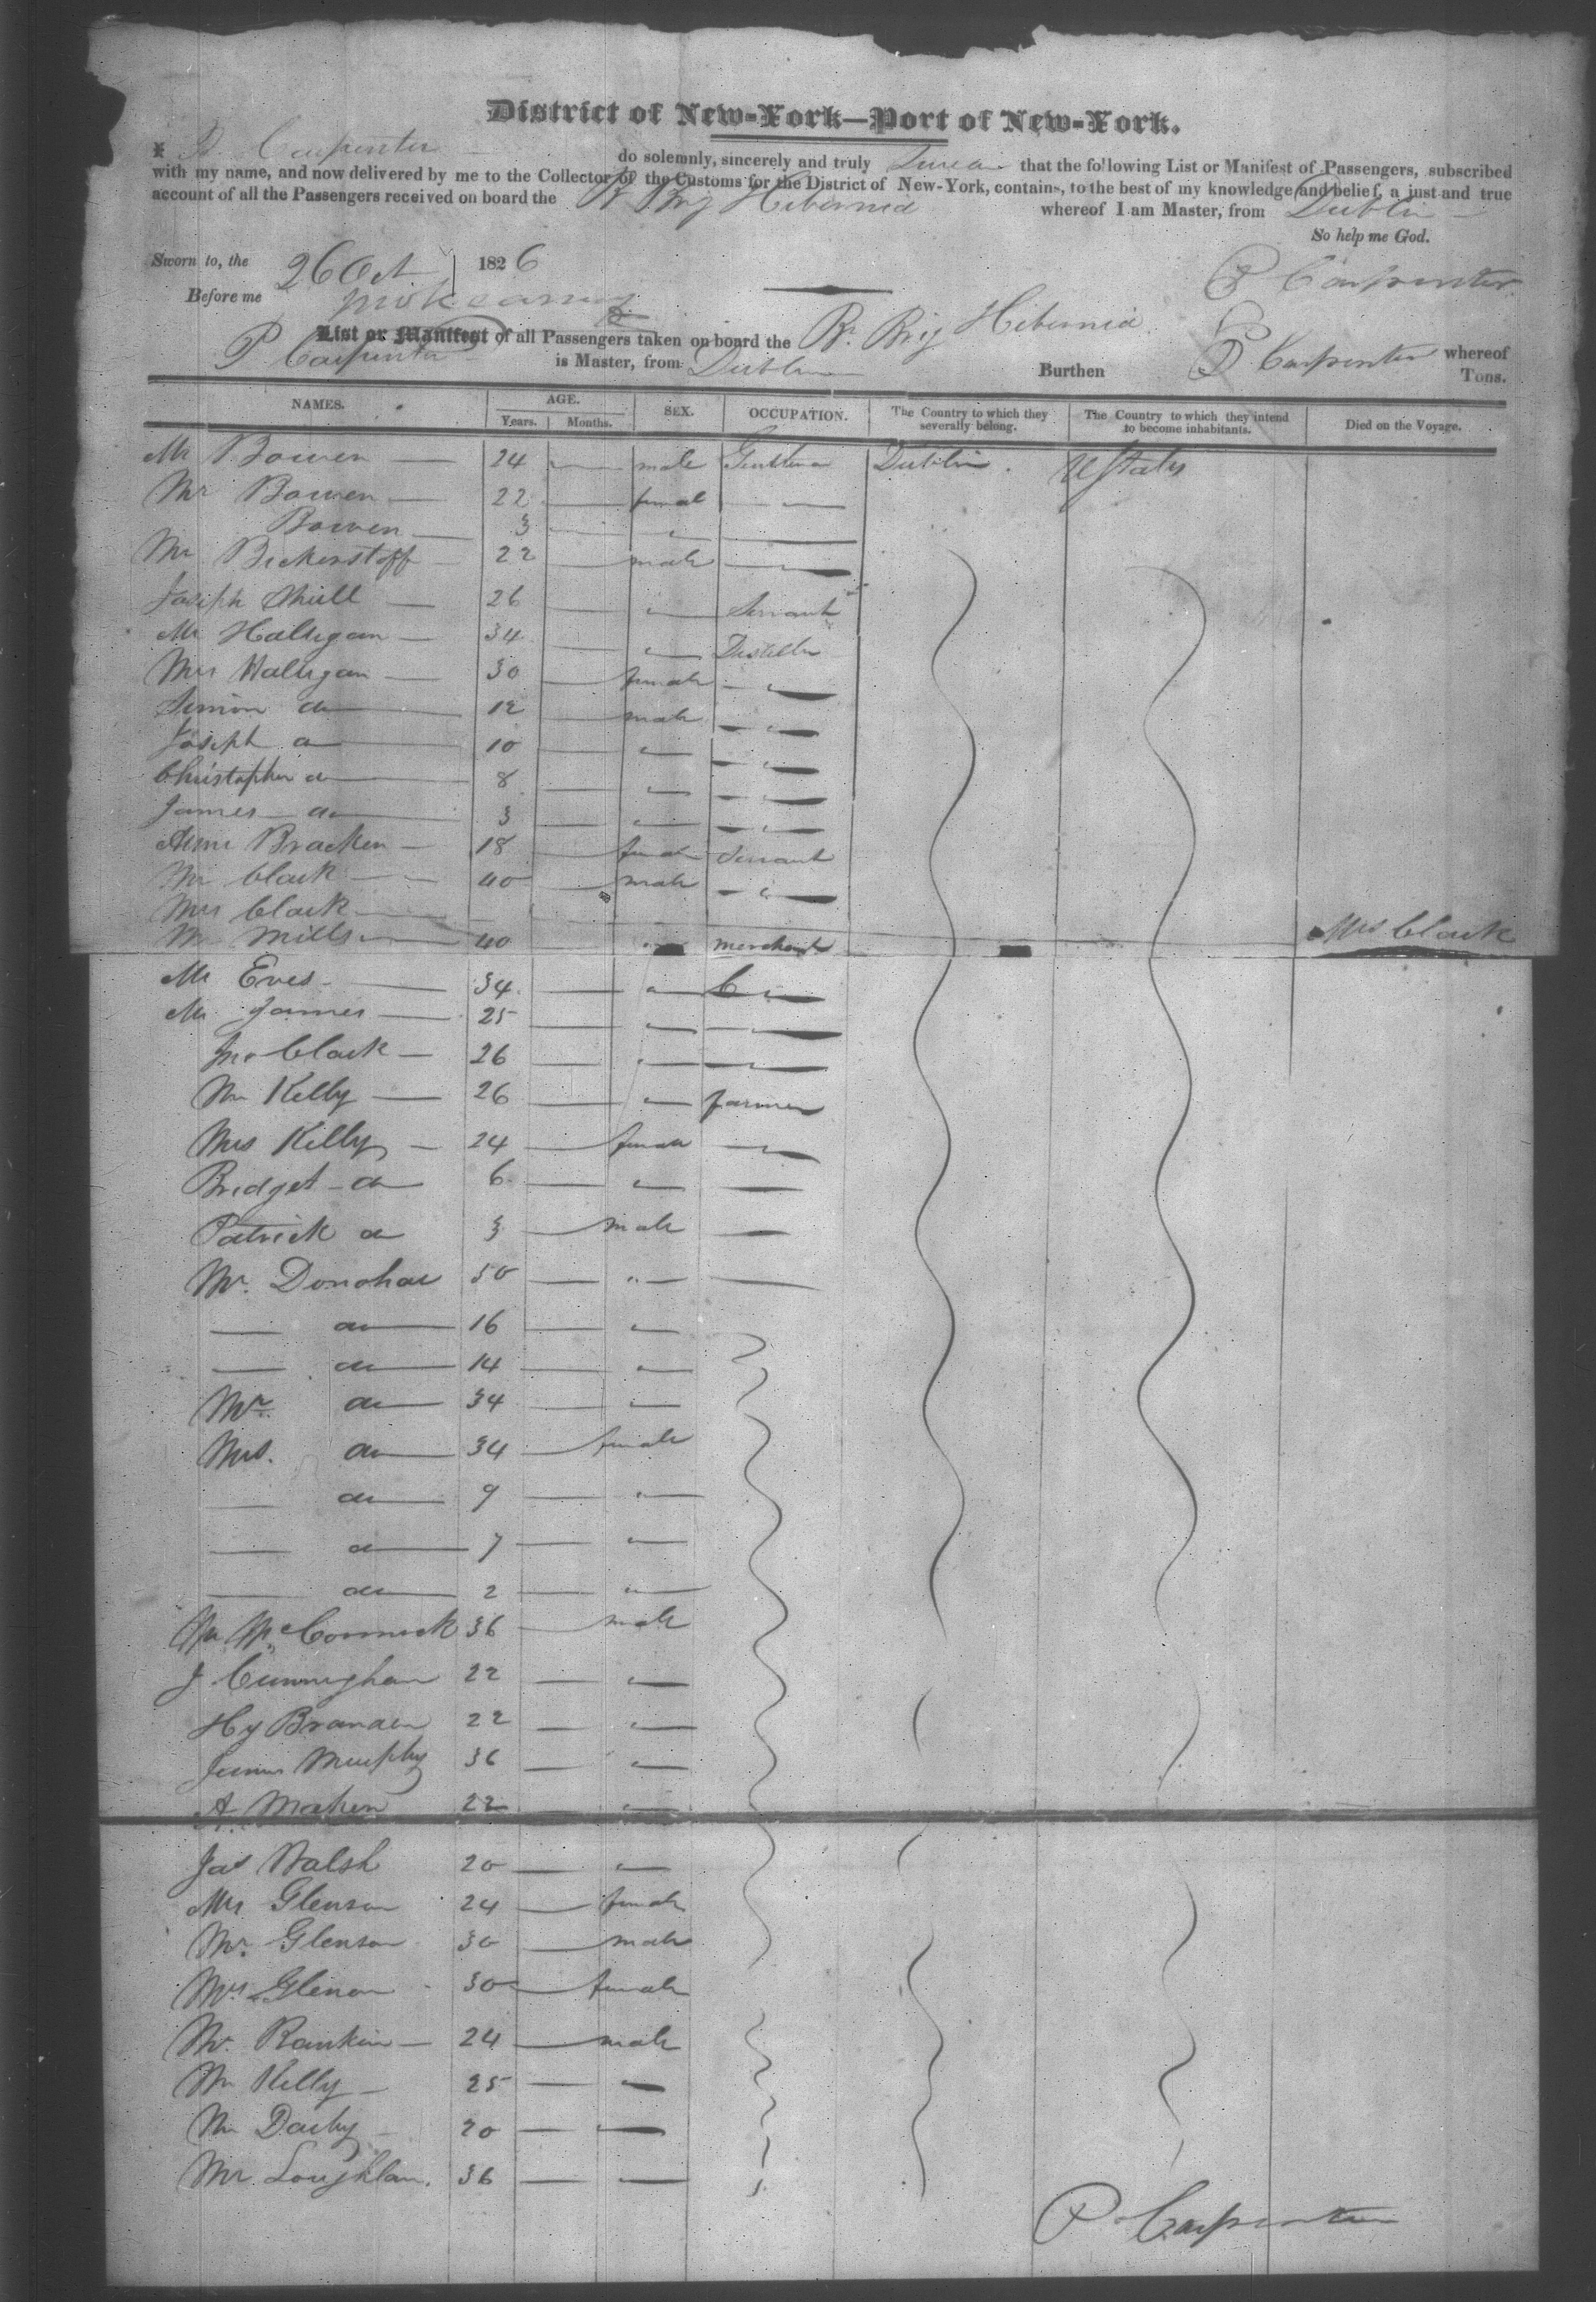 District of New-York—Port of New-York.
I P Carpenter do solemnly, sincerely and truly Swear that the following List or Manifest of Passengers, subscribed
with my name, and now delivered by me to the Collector of the Customs for the District of New-York, contains, to the best of my knowledge and belief, a just and true
account of all the Passengers received on board the Br Brig Hibernia whereof I am Master, from Dublin
So help me God.
Sworn to, the 26 Oct 1826
P Carpenter
Before me
List or Manifest of all Passengers taken on board the Br. Brig Hibernia
P Carpenter is Master, from Dublin Burthen P Carpenter whereof
Tons.
NAMES. AGE. Years. Months. SEX. OCCUPATION. The Country to which they severally belong. The Country to which they intend to become inhabitants. Died on the Voyage.
Mr Bowen 24 male Gentleman Dublin UStates
Mrs Bowen 22 female "
Bowen 3 "
Mr Bickerstoff 22 male "
Joseph 26 " Servant
Mr Halligan 34 " Distiller
Mrs Halligan 30 female "
Simon do 12 male "
Joseph do 10 " "
Christopher do 8 " "
James do 3 " "
Anne Bracken 18 female Servant
Mr Clark 40 male "
Mrs Clark
Mr Mills 40 " merchant Mrs Clark
Mr Eves 34 "
Mr James 25 "
Jno Clark 26 "
Mr Kelly 26 " farmer
Mrs Kelly 24 female "
Bridget do 6 "
Patrick do 3 male
Mr. Donohoe 50 "
do 16 "
do 14 "
Mr. do 34 "
Mrs. do 34 female
do 9 "
do 7 "
do 2 "
Mr McCormick 36 male
J Cunningham 22 "
Hy Branden 22 "
James Murphy 36 "
A. Maken 22 "
Jas Walsh 20 "
Mrs Glenson 24 female
Mr. Glenson 30 male
Mrs Glenon 30 female
Mr. Rankin 24 male
Mr Kelly 25
Mr Darby 20
Mr Loughlan. 36
P Carpenter